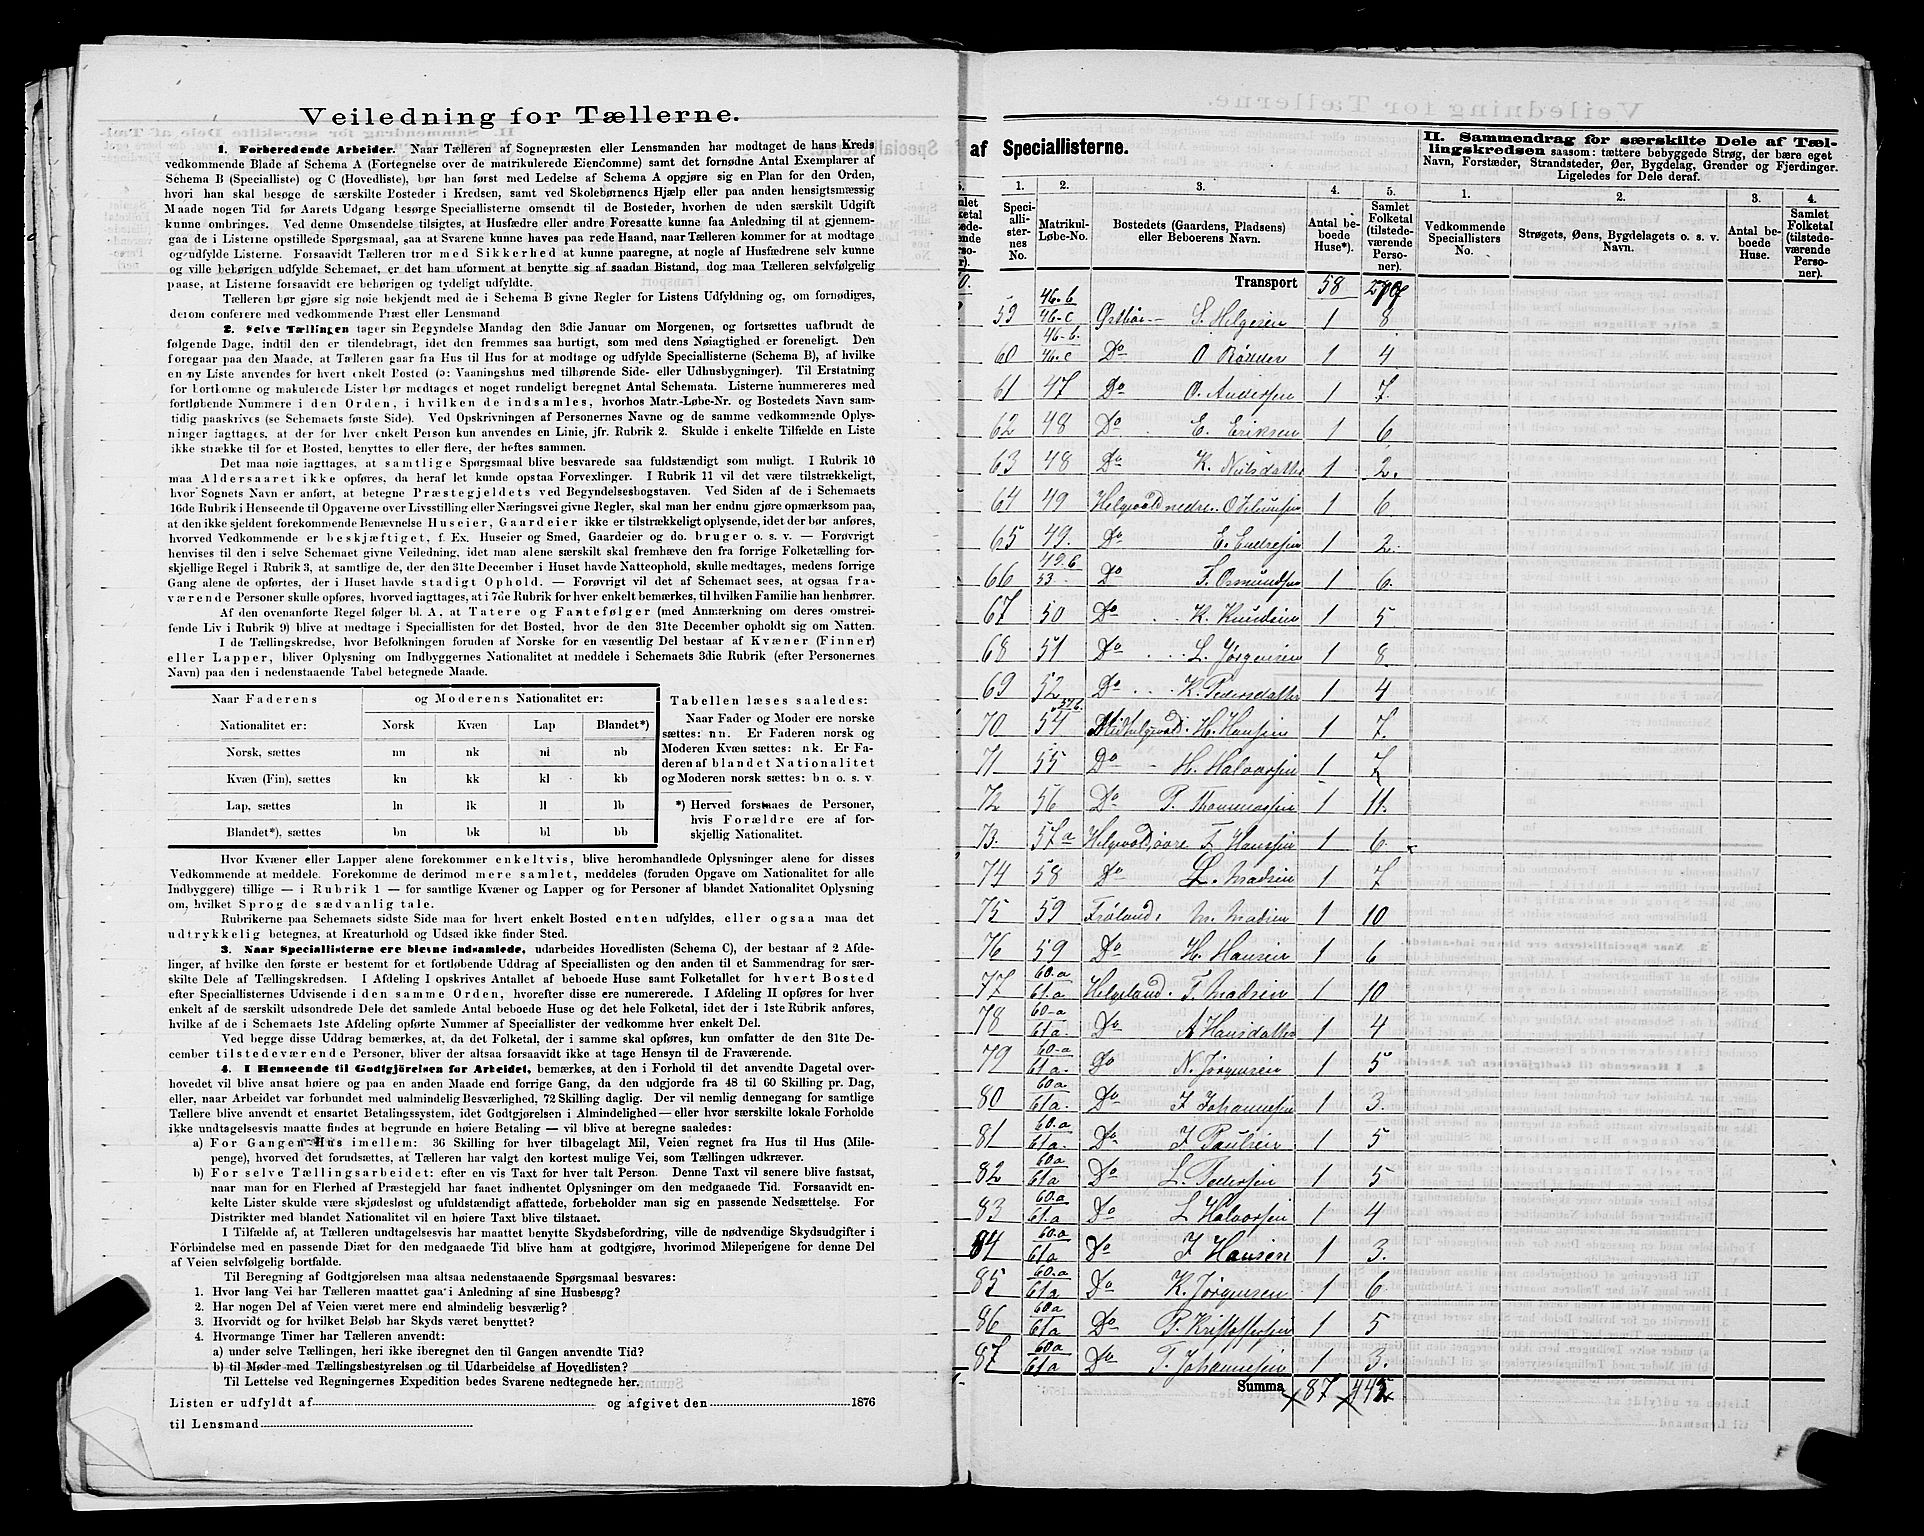 Veiledning for Tællerne.
1. Forberedende Arbeider. Naar Tælleren af Sognepræsten eller Lensmanden har modtaget de hans Kreds
vedkommende Blade af Schema A (Fortegnelse over de matrikulerede Eiendomme) samt det fornødne Antal Exemplarer af
Schema B (Specialliste) og C (Hovedliste), bør han først med Ledelse af Schema A opgjøre sig en Plan for den Orden,
hvori han skal besøge de særskilte Posteder i Kredsen, samt ved Skolebørnenes Hjælp eller paa anden hensigtsmæssig
Maade nogen Tid før Aarets Udgang besørge Speciallisterne omsendt til de Bosteder, hvorhen de uden særskilt Udgift
kunne ombringes. Ved denne Omsendelse tilsigtes, at Husfædre eller andre Foresatte kunne faa Anledning til at gjennem-
gaa de i Listerne opstillede Spørgsmaal, saa at Svarene kunne haves paa rede Haand, naar Tælleren kommer for at modtage
og udfylde Listerne. Forsaavidt Tælleren tror med Sikkerhed at kunne paaregne, at nogle af Husfædrene selv kunne
og ville behørigen udfylde Schemaet, er det ham uforment at benytte sig af saadan Bistand, dog maa Tælleren selvfølgelig
paase, at Listerne forsaavidt ere behørigen og tydeligt udfyldte.
Tælleren bør gjøre sig nøie bekjendt med de i Schema B givne Regler for Listens Udfyldning og, om fornødiges,
derom conferere med vedkommende Præst eller Lensmand
2. Selve Tællingen tager sin Begyndelse Mandag den 3die Januar om Morgenen, og fortsættes uafbrudt de
følgende Dage, indtil den er tilendebragt, idet den fremmes saa hurtigt, som med dens Nøiagtighed er foreneligt. Den
foregaar paa den Maade, at Tælleren gaar fra Hus til Hus for at modtage og udfylde Speciallisterne (Schema B), af hvilke
en ny Liste anvendes for hvert enkelt Posted (ɔ: Vaaningshus med tilhørende Side- eller Udhusbygninger). Til Erstatning
for bortkomne og makulerede Lister bør medtages et noget rundeligt beregnet Antal Schemata. Listerne nummereres med
fortløbende Nummere i den Orden, i hvilken de indsamles, hvorhos Matr.-Løbe-Nr. og Bostedets Navn sam-
tidig paaskrives (se Schemaets første Side). Ved Opskrivningen af Personernes Navne og de samme vedkommende Oplys-
ninger iagttages, at der for hver enkelt Person kun anvendes en Linie, jfr. Rubrik 2. Skulde i enkelte Tilfælde en Liste
ikke strække til for et Bosted, benyttes to eller flere, der heftes sammen.
Det maa nøie iagttages, at samtlige Spørgsmaal blive besvarede saa fuldstændigt som muligt. I Rubrik 10
maa Aldersaaret ikke opføres, da heraf let kunde opstaa Forvexlinger. I Rubrik 11 vil det være tilstrækkeligt,
hvor Sognets Navn er anført, at betegne Præstegjeldets ved Begyndelsesbogstaven. Ved Siden af de i Schemaets
16de Rubrik i Henseende til Opgaverne over Livsstilling eller Næringsvei givne Regler, skal man her endnu gjøre opmærksom paa,
at den ikke sjeldent forekommende Benævnelse Huseier, Gaardeier ikke er tilstrækkeligt oplysende, idet der bør anføres,
hvorved Vedkommende er beskjæftiget, f. Ex. Huseier og Smed, Gaardeier og do. bruger o. s. v. — Forøvrigt
henvises til den i selve Schemaet givne Veiledning, idet man alene særskilt skal fremhæve den fra forrige Folketælling for-
skjellige Regel i Rubrik 3, at samtlige de, der den 31te December i Huset havde Natteophold, skulle medtages, medens forrige
Gang alene de opførtes, der i Huset havde stadigt Ophold. — Forøvrigt vil det af Schemaet sees, at ogsaa fra-
værende Personer skulle opføres, hvorved iagttages, at i 7de Rubrik for hver enkelt bemærkes, til hvilken Familie han henhører.
Af den ovenanførte Regel følger bl. A, at Tatere og Fantefølger (med Anmærkning om deres omstrei-
fende Liv i Rubrik 9) blive at medtage i Speciallisten for det Bosted, hvor de den 31te December opholdt sig om Natten.
I de Tællingskredse, hvor Befolkningen foruden af Norske for en væsentlig Del bestaar af Kvæner (Finner)
eller Lapper, bliver Oplysning om Indbyggernes Nationalitet at meddele i Schemaets 3die Rubrik (efter Personernes
Navn) paa den i nedenstaaende Tabel betegnede Maade.
Naar Faderens | og Moderens Nationalitet er:
Nationalitet er: | Norsk | Kvæn | Lap | Blandet*)
Norsk, sættes | nn | nk | nl | nb
Kvæn (Fin), sættes | kn | kk | kl | kb
Lap, sættes | ln | lk | ll | lb
Blandet*), sættes | bn | bk | bl | bb
Tabellen læses saaledes:
Naar Fader og Moder ere norske
sættes: nn. Er Faderen norsk og
Moderen Kvæn sættes: nk. Er Fa-
deren af blandet Nationalitet
og Moderen norsk sættes: bn o. s. v
*) Herved forstaaes de Personer,
hvis Forældre ere af for-
skjellig Nationalitet.
Hvor Kvæner eller Lapper alene forekommer enkeltvis, blive heromhandlede Oplysninger alene for disses
Vedkommende at meddele. Forekomme de derimod mere samlet, meddeles (foruden Opgave om Nationalitet for alle
Indbyggere) tillige — i Rubrik 1 — for samtlige Kvæner og Lapper og for Personer af blandet Nationalitet Oplysning
om, hvilket Sprog de sædvanlig tale.
Rubrikerne paa Schemaets sidste Side maa for hvert enkelt Bosted enten udfyldes, eller ogsaa maa det
udtrykkelig betegnes, at Kreaturhold og Udsæd ikke finder Sted.
3. Naar Speciallisterne ere blevne indsamlede, udarbeides Hovedlisten (Schema C), der bestaar af 2 Afde-
linger, af hvilke den første er bestemt for et fortløbende Uddrag af Speciallisten og den anden til et Sammendrag for sær-
skilte Dele af Tællingskredsen. I Afdeling I opskrives Antallet af beboede Huse samt Folketallet for hvert Bosted
efter Speciallisternes Udvisende i den samme Orden, hvorefter disse ere numererede. I Afdeling II opføres for hver
enkelt af de særskilt udsondrede Dele det samlede Antal beboede Huse og det hele Folketal, idet der i 1ste Rubrik anføres,
hvilke af de i Schemaets 1ste Afdeling opførte Nummer af Speciallister der vedkomme hver enkelt Del.
Ved begge disse Uddrag bemærkes, at, da det Folketal, der i samme skal opføres, kun omfatter de den 31te De-
cember tilstedeværende Personer, bliver der altsaa forsaavidt ikke at tage Hensyn til de Fraværende.
4. I Henseende til Godtgjörelsen for Arbeidet, bemærkes, at den i Forhold til det anvendte Dagetal over-
hovedet vil blive ansat høiere og paa en anden Maade end forrige Gang, da den udgjorde fra 48 til 60 Skilling pr. Dag,
eller, naar Arbeidet var forbundet med ualmindelig Besværlighed, 72 Skilling daglig. Der vil nemlig dennegang for samtlige
Tællere blive anvendt et ensartet Betalingssystem, idet Godtgjørelsen i Almindelighed — eller hvor særskilte lokale Forholde
ikke undtagelsesvis maatte findes at begrunde en høiere Betaling — vil blive at beregne saaledes:
a) For Gangen Hus imellem: 36 Skilling for hver tilbagelagt Mil, Veien regnet fra Hus til Hus (Mile-
penge), hvorved det forudsættes, at Tælleren har valgt den kortest mulige Vei, som Tællingen udkræver.
b) For selve Tællingsarbeidet: efter en vis Taxt for hver talt Person. Denne Taxt vil senere blive fastsat,
naar man for en Flerhed af Præstegjeld har faaet indhentet Oplysninger om den medgaaede Tid. Forsaavidt en-
kelte Lister skulde være skjødesløst og ufuldstændigt affattede, forbeholder man sig en passende Nedsættelse. For
Distrikter med blandet Nationalitet vil en høiere Taxt blive tilstaaet.
I Tilfælde af, at Tælleren undtagelsesvis har maattet benytte Skydsbefordring, ville de nødvendige Skydsudgifter i
Forbindelse med en passende Diæt for den medgaaede Tid blive ham at godtgjøre, hvorimod Milepengene for denne Del
af Veien selvfølgelig bortfalde.
Til Beregning af Godtgjørelsen maa altsaa nedenstaaende Spørgsmaal besvares:
1. Hvor lang Vei har Tælleren maattet gaa i Anledning af sine Husbesøg?
2. Har nogen Del af Veien været mere end almindelig besværlig?
3. Hvorvidt og for hvilket Beløb har Skyds været benyttet?
4. Hvormange Timer har Tælleren anvendt:
a) under selve Tællingen, heri ikke iberegnet den til Gangen anvendte Tid?
b) til Møder med Tællingsbestyrelsen og til Udarbeidelse af Hovedlisten?
Til Lettelse ved Regningernes Expedition bedes Svarene nedtegnede her.
Listen er udfyldt af og afgivet den 1876
til Lensmand
af Speciallisterne.
1. | 2. | 3. | 4. | 5.
Speci-alli-ster-nes No. | Matrikul-Løbe-No. | Bostedets (Gaardens, Pladsens) eller Beboerens Navn. | Antal be-boede Huse*). | Samlet Folketal (tilstede-værende Perso-ner).
Transport 58
59 | 46.b 46.c | Østbø S. Helgesen | 1 | 8
60 | 46.b. 46.c | Do O Rönnen | 1 | 4
61 | 47 | Do O. Andersen | 1 | 7.
62 | 48 | Do E. Eriksen | 1 | 6.
63 | 48 | Do K. Nilsdatter | 1 | 2.
64 | 49 | Helgevold nedre | 1 | 6
65 | 49. | Do E. Endresen | 1 | 2.
66 | 49.b 53 | Do S. Osmundsen | 1 | 6.
67 | 50 | Do K. Knudsen | 1 | 5
68 | 51 | Do L. Jørgensen | 1 | 8
69 | 52 | Do K. Pedersdatter | 1 | 4
70 | 54 | Midhelgevold H. Hansen | 1 | 7.
71 | 55 | Do H. Halvorsen | 1 | 7
72 | 56 | Do P. Thommassen | 1 | 11.
73. | 57a | Helgevold øvre T Hansen | 1 | 6.
74 | 58 | Do L. Madsen | 1 | 7
75 | 59 | Fröland M. Madsen | 1 | 10
76 | 59 | Do H. Hansen | 1 | 6
77 | 60.a 61.a | Helgeland T. Madsen | 1 | 10
78 | 60.a 61a | Do A Hansdatter | 1 | 4
79 | 60.a 61a | Do N. Jørgensen | 1 | 5
80 | 60a. 61a. | Do J Johannesen | 1 | 3.
81 | 60.a 61a. | Do J Paulsen | 1 | 5
82 | 60a 61a | Do L. Pedersen | 1 | 5
83 | 60.a 61.a | Do L Halvorsen | 1 | 4
84 | 60.a 61a | Do J Hansen | 1 | 3.
85 | 60.a 61a | Do K. Jørgensen | 1 | 6
86 | 60a 61a | Do P. Kristoffersen | 1 | 5
87 | 60a 61a | Do T. Johannesen | 1 | 3.
Summa 87 445
II. Sammendrag for særskilte Dele af Tæl-
lingskredsen saasom: tættere bebyggede Strøg, der bære eget
Navn, Forstæder, Strandsteder, Øer, Bygdelag, Grender og Fjerdinger.
Ligeledes for Dele deraf.
1. | 2. | 3. | 4.
Vedkommende Speciallisters No. | Strøgets, Øens, Bygdelagets o. s. v. Navn. | Antal be-boede Huse. | Samlet Folketal (tilstede-værende Perso-ner).